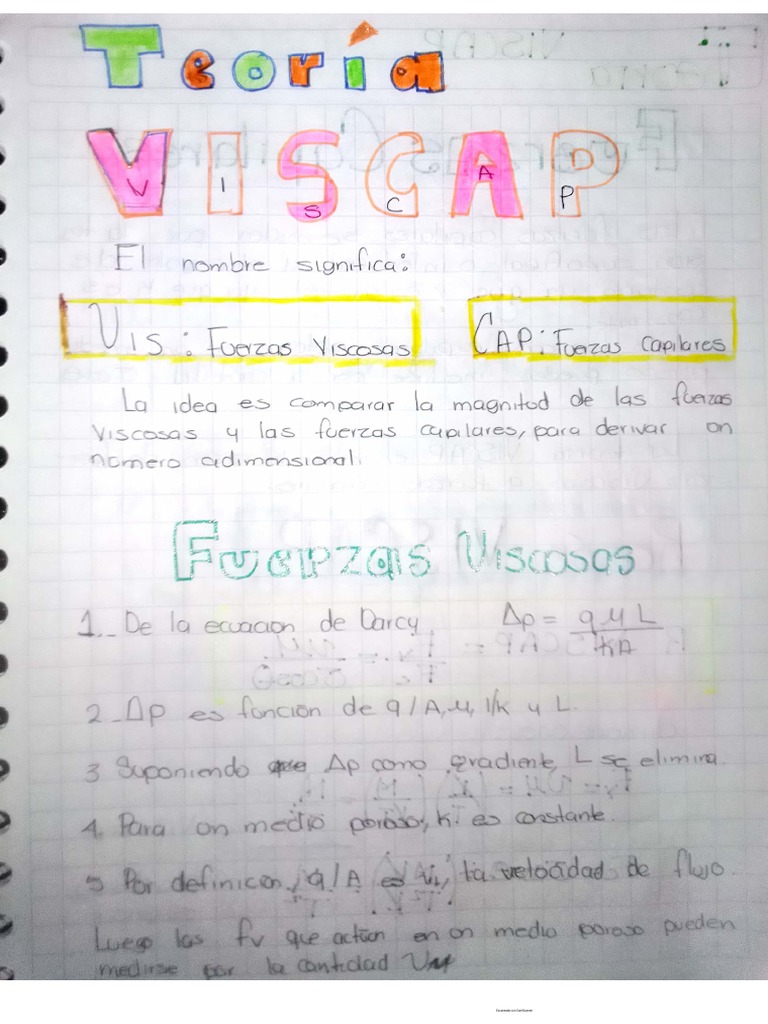 Teoría
VISCAP
El nombre significa:
VIS: Fuerzas Viscosas
CAP: Fuerzas Capilares
La idea es comparar la magnitud de las fuerzas
viscosas y las fuerzas capilares, para derivar un
número adimensional.
Fuerzas Viscosas
1._ De la ecuacion de Darcy Δp = qμL / KA
2_ Δp es función de q/A, μ, 1/k y L.
3 Suponiendo Δp como gradiente, L se elimina.
4. Para un medio poroso, K es constante.
5 Por definicion, q/A es u, la velocidad de flujo.
Luego las fv que actúan en un medio poroso pueden
medirse por la cantidad uμ